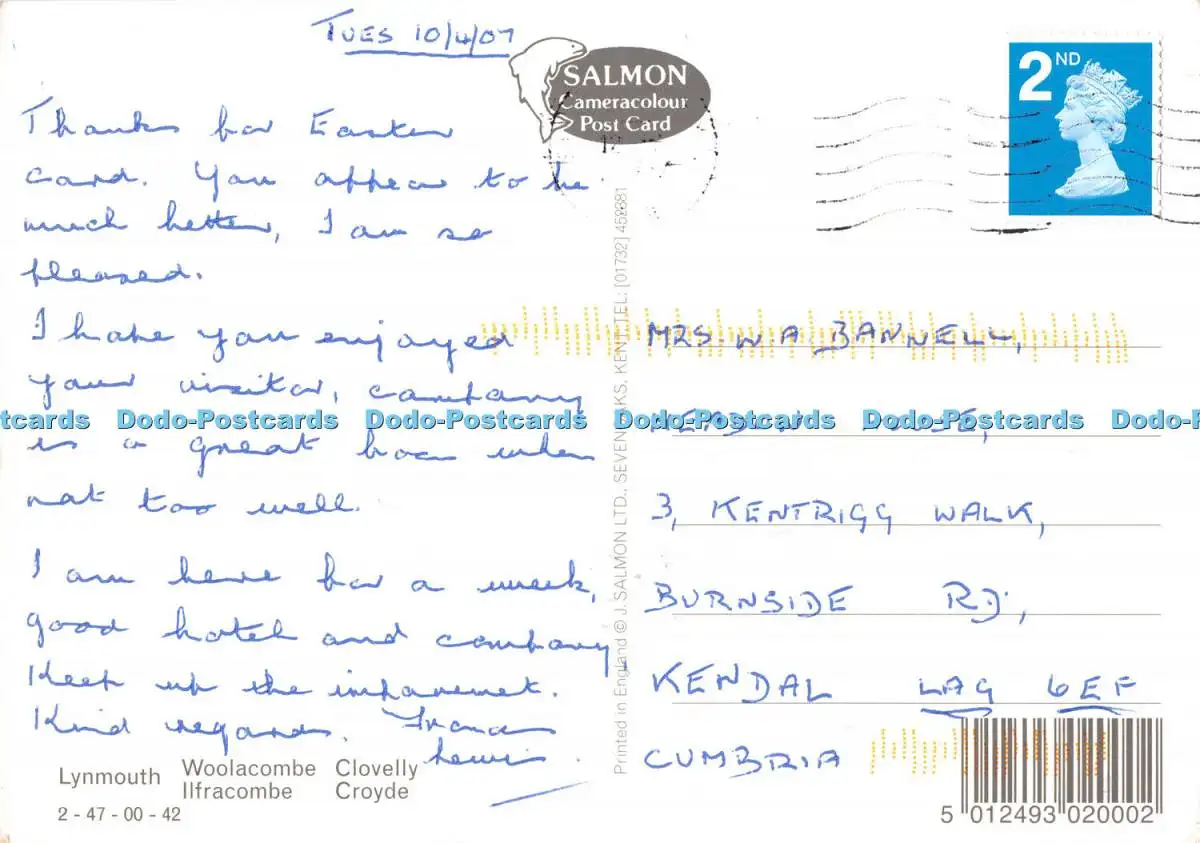 TUES 10/4/07
Thanks for Easter
card. You appear to be
much better, I am so
pleased.
I hope you enjoyed
your visitor, company
is a great boon when
not too well.
I am here for a week,
good hotel and company.
Keep up the improvement.
Kind regards. Frances
Lewis.
Lynmouth Woolacombe Clovelly
Ilfracombe Croyde
2 - 47 - 00 - 42
SALMON
Cameracolour
Post Card
Printed in England © J. SALMON LTD., SEVENOAKS, KENT. TEL: [01732] 452381
2ND
MRS. W. A. BANNELL,
HOUSE,
3, KENTRIGG WALK,
BURNSIDE RD.,
KENDAL LA9 6EF
CUMBRIA
5 012493 020002
tcards Dodo-Postcards Dodo-Postcards Dodo-Postcards Dodo-Postcards Dodo-P